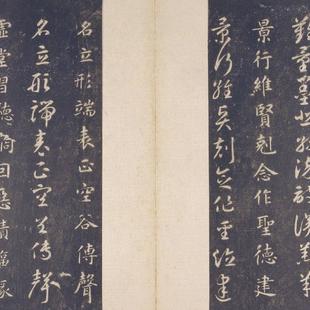 難量墨悲絲染詩讚羔羊
景行維賢剋念作聖德建
景行維賢剋念作聖德建
名立形端表正空谷傳聲
名立形端表正空谷傳聲
虛堂習聽禍因惡積福緣